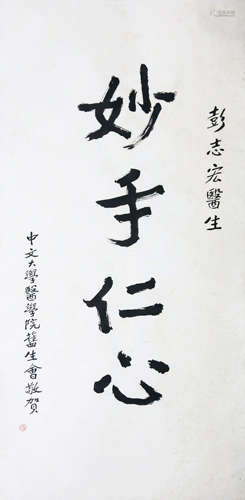 彭志宏醫生
妙手仁心
中文大學醫學院舊生會敬賀